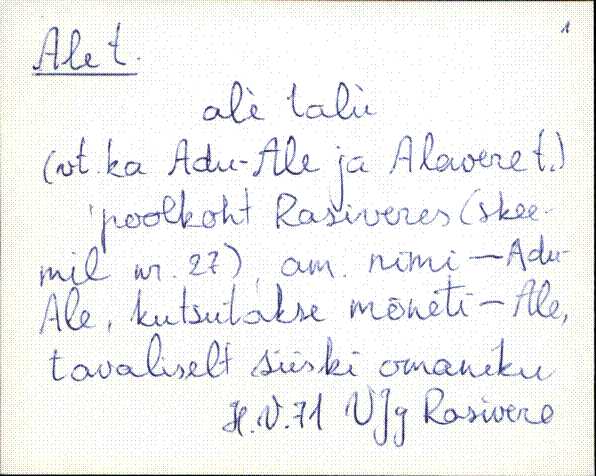 1
Ale t.
alè talù
(vt. ka Adu-Ale ja Alavere t.)
poolkoht Rasiveres (skee-
mil nr. 27), am. nimi – Adu-
Ale, kutsutakse mõneti – Ale,
tavaliselt siiski omaniku
H.V.71 VJg Rasivere